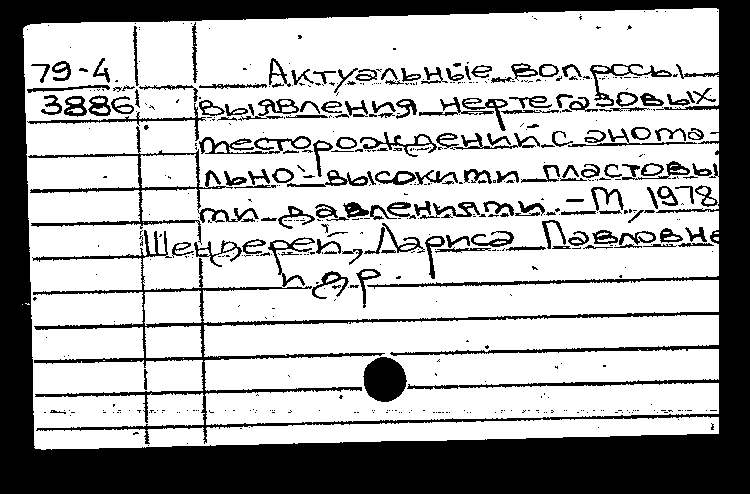 79-4 Актуальные вопросы
3886 выявления нефтегазовых
месторождений с анома-
льно-высокими пластовы
ми давлениями. - М, 1978
Шендерей, Лариса Павловне
и др.